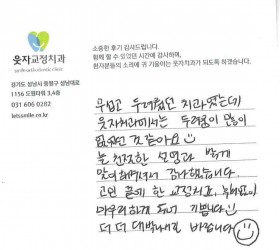 웃자교정치과
경기도 성남시 중원구 성남대로
1126 드림타워 3,4층
031 606 0282
letssmile.co.kr
소중한 후기 감사드립니다.
함께 할 수 있었던 시간에 감사하며,
환자분들의 소리에 귀 기울이는 웃자치과가 되도록 하겠습니다.
무섭고 두려웠던 치과였는데
웃자치과에서는 두려움이 많이
없어진 것 같아요
늘 친절한 설명과 밝게
맞이해주셔서 감사했습니다.
고민 끝에 한 교정치과, 후회없이
마무리하게 되어 기쁩니다
더 더 대박나시길 바랍니다